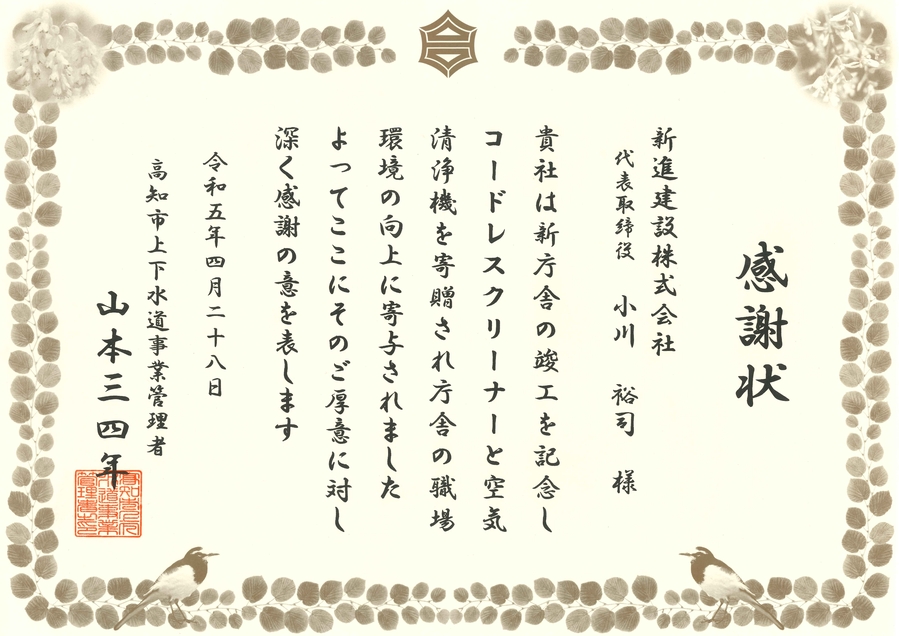 感謝状
新進建設株式会社
代表取締役 小川 裕司 様
貴社は新庁舎の竣工を記念し
コードレスクリーナーと空気
清浄機を寄贈され庁舎の職場
環境の向上に寄与されました
よってここにそのご厚意に対し
深く感謝の意を表します
令和五年四月二十八日
高知市上下水道事業管理者
山本三四年